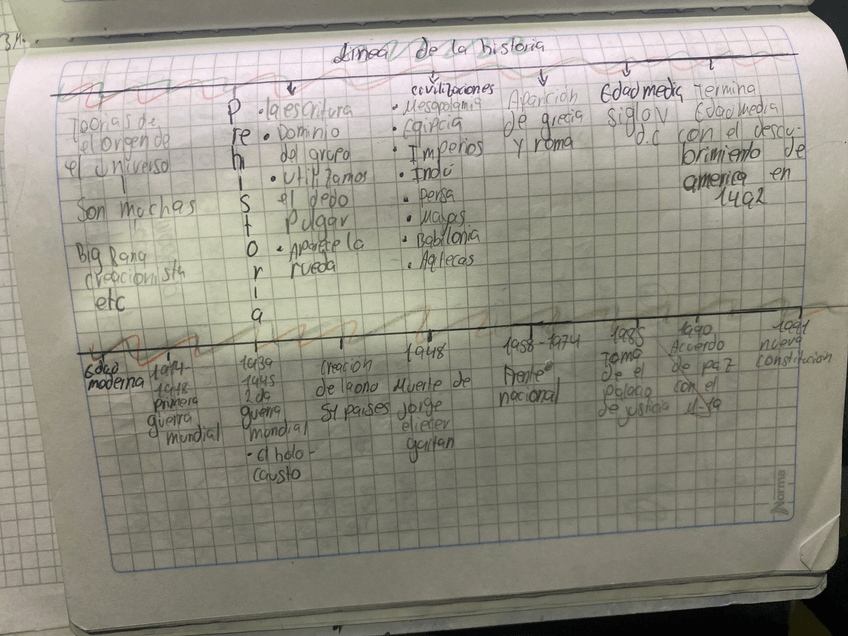 Linea de la historia
Teorias de
el origen de
el universo
Son muchas
Big Bang
creacionista
etc
Prehistoria
• la escritura
• Dominio
del grupo
• utilizamos
el dedo
pulgar
• Aparece la
rueda
civilizaciones
• Mesopotamia
• Egipcia
• Imperios
• Indú
• Persa
• Mayas
• Babilonia
• Aztecas
Aparicion
de grecia
y roma
Edad media
siglo V
d.c
Termina
Edad media
con el descu-
brimiento de
america en
1492
Edad
moderna
1914
1918
primera
guerra
mundial
1939
1945
2da
guerra
mundial
• el holo-
causto
creacion
de la onu
51 paises
1948
Muerte de
Jorge
eliecer
gaitan
1958-1974
Frente
nacional
1985
Toma
de el
palacio
de justicia
1990
Acuerdo
de paz
con el
M-19
1991
nueva
constitucion
Norma